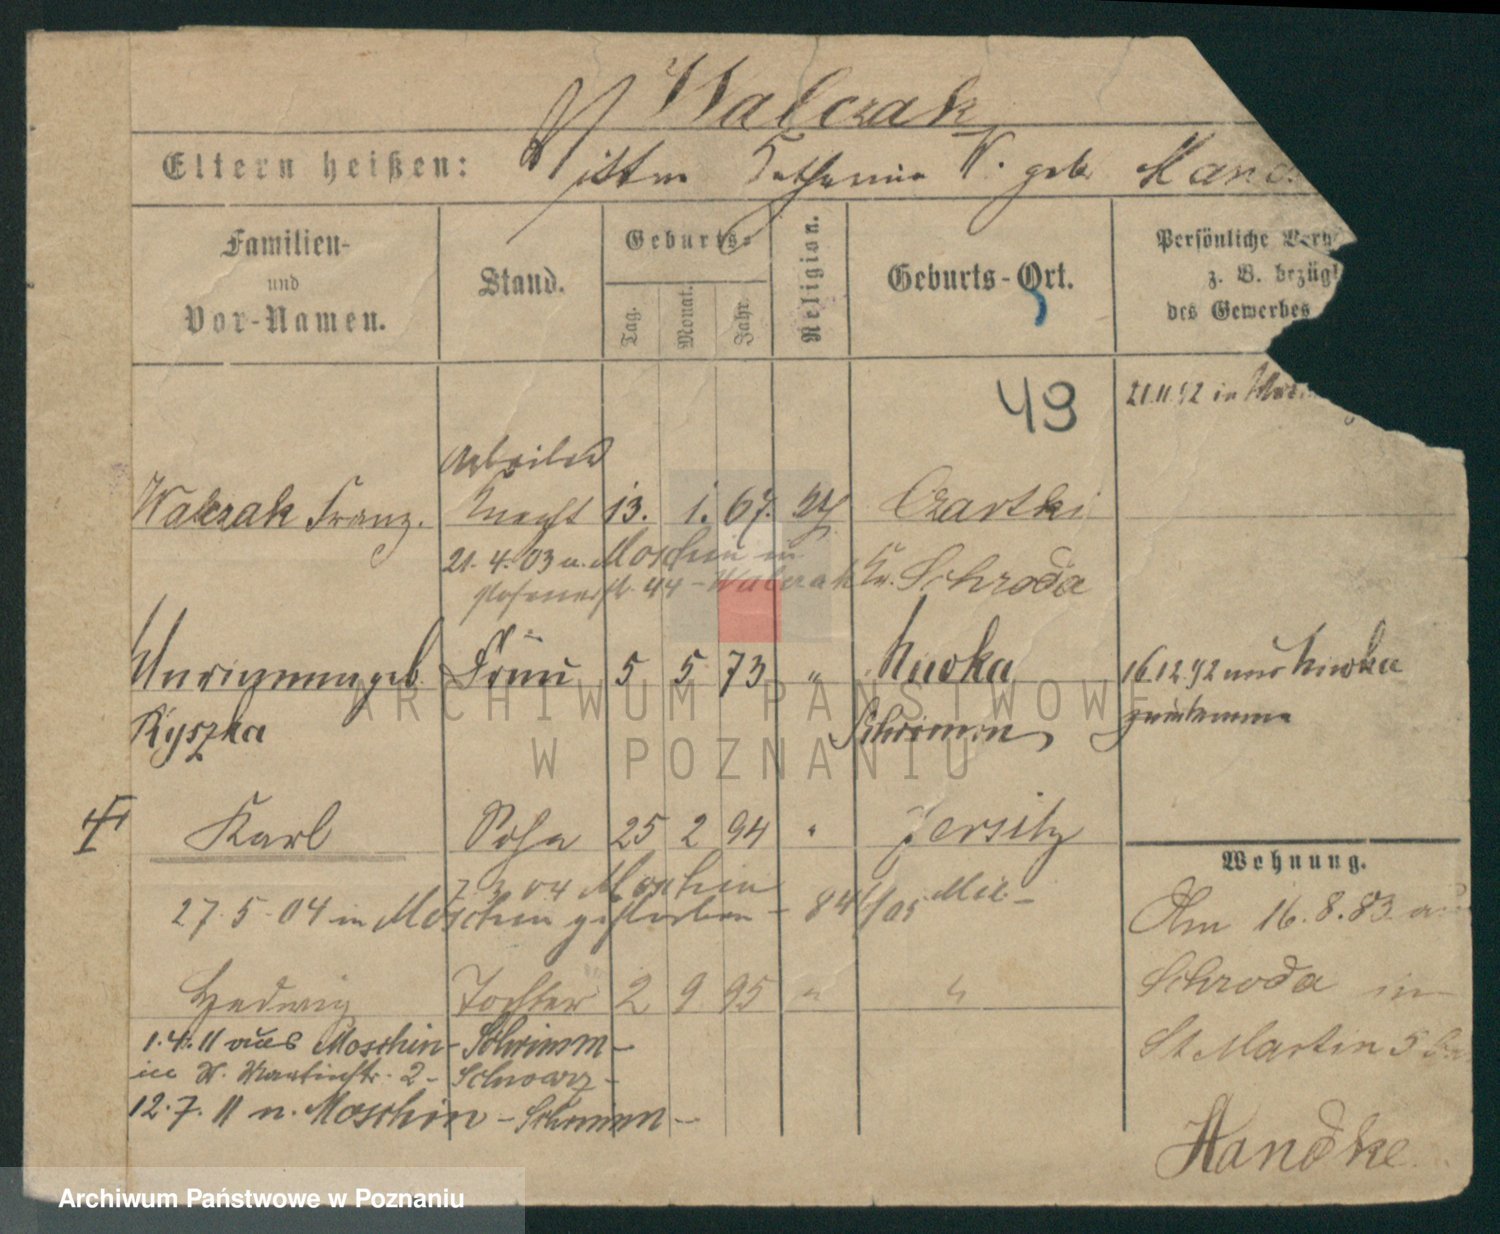 Walczak
Eltern heißen: Katharina W. geb.
Familien-
und
Vor-Namen.
Stand.
Geburts-
Tag.
Monat.
Jahr
Religion.
Geburts-Ort.
Persönliche
z. B. bezügl
des Gewerbes
49
21.11.92 in
Arbeiter
Walczak Franz. Knecht 13. 1. 67. Czartki
21.4.03 n. Moschin in
44 - Walczak Kr. Schroda
geb. Frau 5 5 73 " Niwka 16.12.92 aus Niwka
Ryszka Schrimm
Karl Sohn 25 2 94 " Jersitz
7 3 04 Moschin
27.5.04 in Moschin gestorben - 84/05
Wohnung.
Am 16.8.93
Schroda in
St Martin 5
Hedwig Tochter 2 9 95 " "
1.4.11 aus Moschin - Schrimm -
in W. Martinstr. 2 -
12.7.11 n. Moschin - Schrimm -
Handke
ARCHIWUM PAŃSTWOWE
W POZNANIU
Archiwum Państwowe w Poznaniu